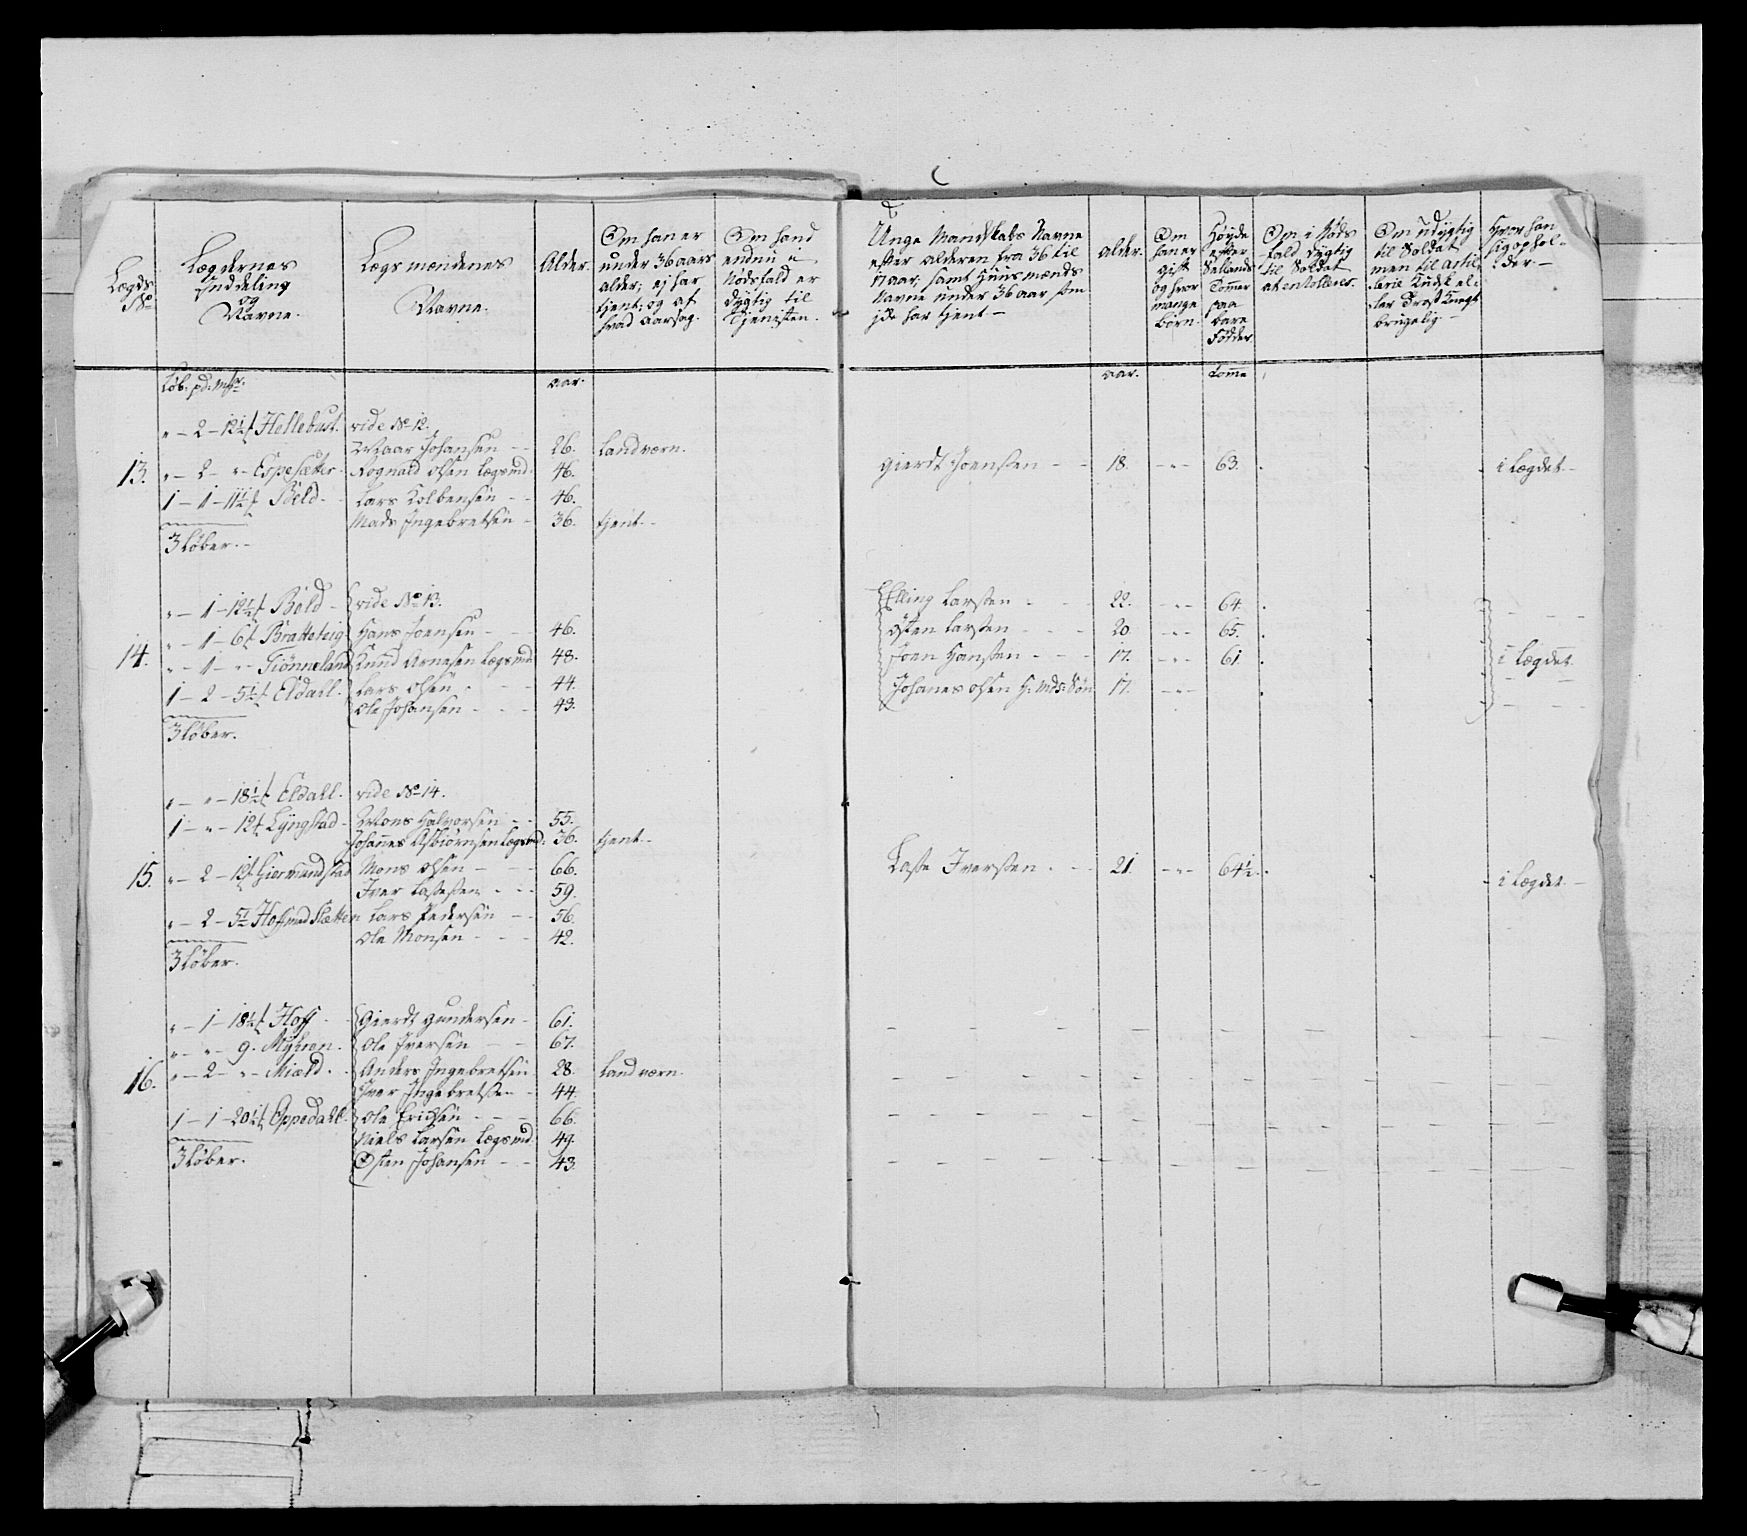 Lægds No
Lægdernes Inddeling og Navne.
Lægs mændenes Navne.
Alder.
Om han er under 36 aars alder; ej har tjent; og af hvad Aarsag.
Om hand endnu i Nödsfald er dygtig til Tjenesten.
Unge Mandskabs Navne efter alderen fra 36 til 17 aar, samt Huusmænds Navne under 36 aar som jke har tjent —
alder.
Om han er gift og hvor mange börn.
Høyde efter Sællands Tommer paa bare Födder
Om i Nöds fald dygtig til Soldat at enrolleres.
Om udygtig til Soldat men til Artillerie Kudsk eller Dross Knegt brugelig. —
Hvor han sig opholder. —
Löb. pd. mkr.
aar.
aar.
Tomme
" — 2 — 12½ Hellebust. vide No 12.
Ivaar Johansen — 26. Landværn.
13. " — 2 — " — Espesætter. Rognald Olsen Lægsmd. 46. Gierdt Joensen — 18. — " — 63. i Lægdet. —
1 — 1 — 11½ Böld — Lars Kolbensen — 46.
Mads Ingebretsen — 36. tjent. —
3 Löber. —
" — 1 — 12½ Böld — vide No 13. Elling Larsen — 22. — " — 64.
" — 1 — 6 Bratteteig Hans Joensen — 46. Östen Larsen — 20. — " — 65.
14. " — 1 — " — Tiönneland Knud Arnesen Lægsmd. 48. Joen Hansen — 17. — " — 61. i Lægdet.
1 — 2 — 5½ Eldall. Lars Olsen — 44. Johanes Olsen H: Mds: Sön 17. — " —
Ole Johansen — 43.
3 Löber.
" — " — 18½ Eldall. vide No 14.
1 — " — 12 Lyngstad — Mons Halvorsen — 55.
Johanes Asbiörnsen Lægsmd: 36. tjent. —
15. " — 2 — 12 Giermundstad Mons Olsen — 66. Lasse Iversen — 21. — " — 64½. i Lægdet —
Iver Lassesen — 59.
" — 2 — 5½ Hoff med Slætten Lars Pedersen — 56.
Ole Monsen — 42.
3 Löber.
" — 1 — 18½ Hoff — Gierdt Gundersen — 61.
" — " — 9. Myhren. Ole Iversen — 67.
16. " — 2 — " — Miæld. Anders Ingebretsen 28. Landværn.
Iver Ingebretsen — 44.
1 — 1 — 20½ Oppedall. Ole Erichsen — 66.
Niels Larsen Lægsmd. 49.
3 Löber. Östen Johansen — 43.